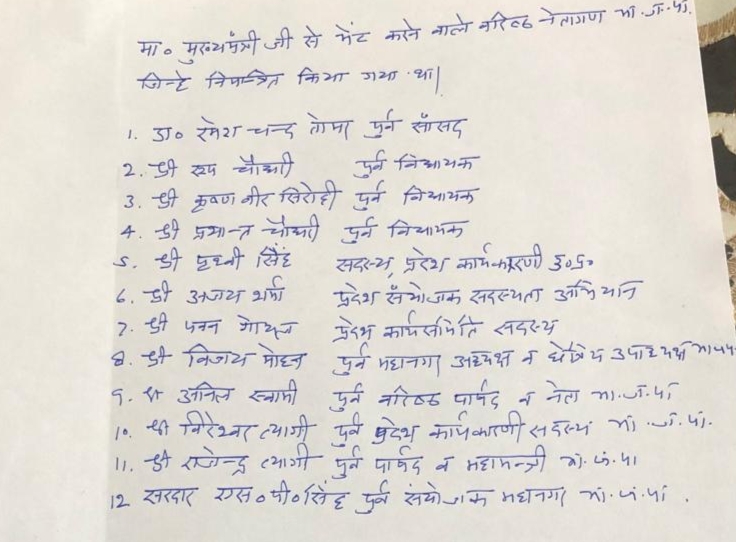 मा० मुख्यमंत्री जी से भेंट करने वाले वरिष्ठ नेतागण भा.ज.पा.
जिन्हे निमन्त्रित किया गया था|
1. डा० रमेश चन्द तोमर पुर्व सांसद
2. श्री रूप चौधरी पुर्व विधायक
3. श्री कृष्ण वीर सिरोही पुर्व विधायक
4. श्री प्रशान्त चौधरी पुर्व विधायक
5. श्री पृथ्वी सिंह सदस्य प्रदेश कार्यकारणी उ०प्र०
6. श्री अजय शर्मा प्रदेश संयोजक सदस्यता अभियान
7. श्री पवन गोयल प्रदेश कार्यसमिति सदस्य
8. श्री विजय मोहन पुर्व महानगर अध्यक्ष व क्षेत्रिय उपाध्यक्ष भा.ज.पा
9. श्री अनिल स्वामी पुर्व वरिष्ठ पार्षद व नेता भा.ज.पा
10. श्री विरेश्वर त्यागी पुर्व प्रदेश कार्यकारणी सदस्य भा.ज.पा.
11. श्री राजेन्द्र त्यागी पुर्व पार्षद व महामन्त्री भा.ज.पा
12 सरदार एस०पी०सिंह पुर्व संयोजक महानगर भा.ज.पा.